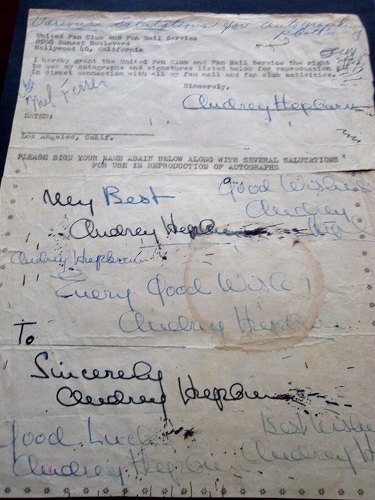 Various Salutations for autograph
United Fan Club and Fan Mail Service
6605 Sunset Boulevard
Hollywood 46, California
I hereby grant the United Fan Club and Fan Mail Service the right
to use my autographs and signatures listed below for reproduction
in direct connection with all my fan mail and fan club activities.
Mel Ferrer
Sincerely,
Audrey Hepburn
DATED:
Los Angeles, Calif.
PLEASE SIGN YOUR NAME AGAIN BELOW ALONG WITH SEVERAL SALUTATIONS
FOR USE IN REPRODUCTION OF AUTOGRAPHS
My Best
Audrey Hepburn
Good Wishes
Audrey
Audrey Hepburn
Every Good Wish
Audrey Hepburn
To
Sincerely
Audrey Hepburn
Good Luck
Audrey Hepburn
Best Wishes
Audrey H